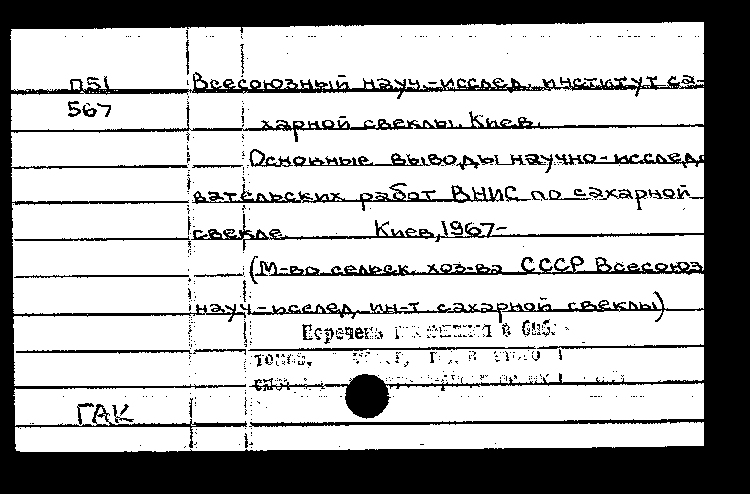 П51
Всесоюзный науч.-исслед. институт са-
567
харной свеклы. Киев.
Основные выводы научно-исследо
вательских работ ВНИС по сахарной
свекле. Киев, 1967-
(М-во сельск. хоз-ва СССР Всесоюз
науч.-исслед. ин-т сахарной свеклы)
Перечень в библ.
томов,
ГАК